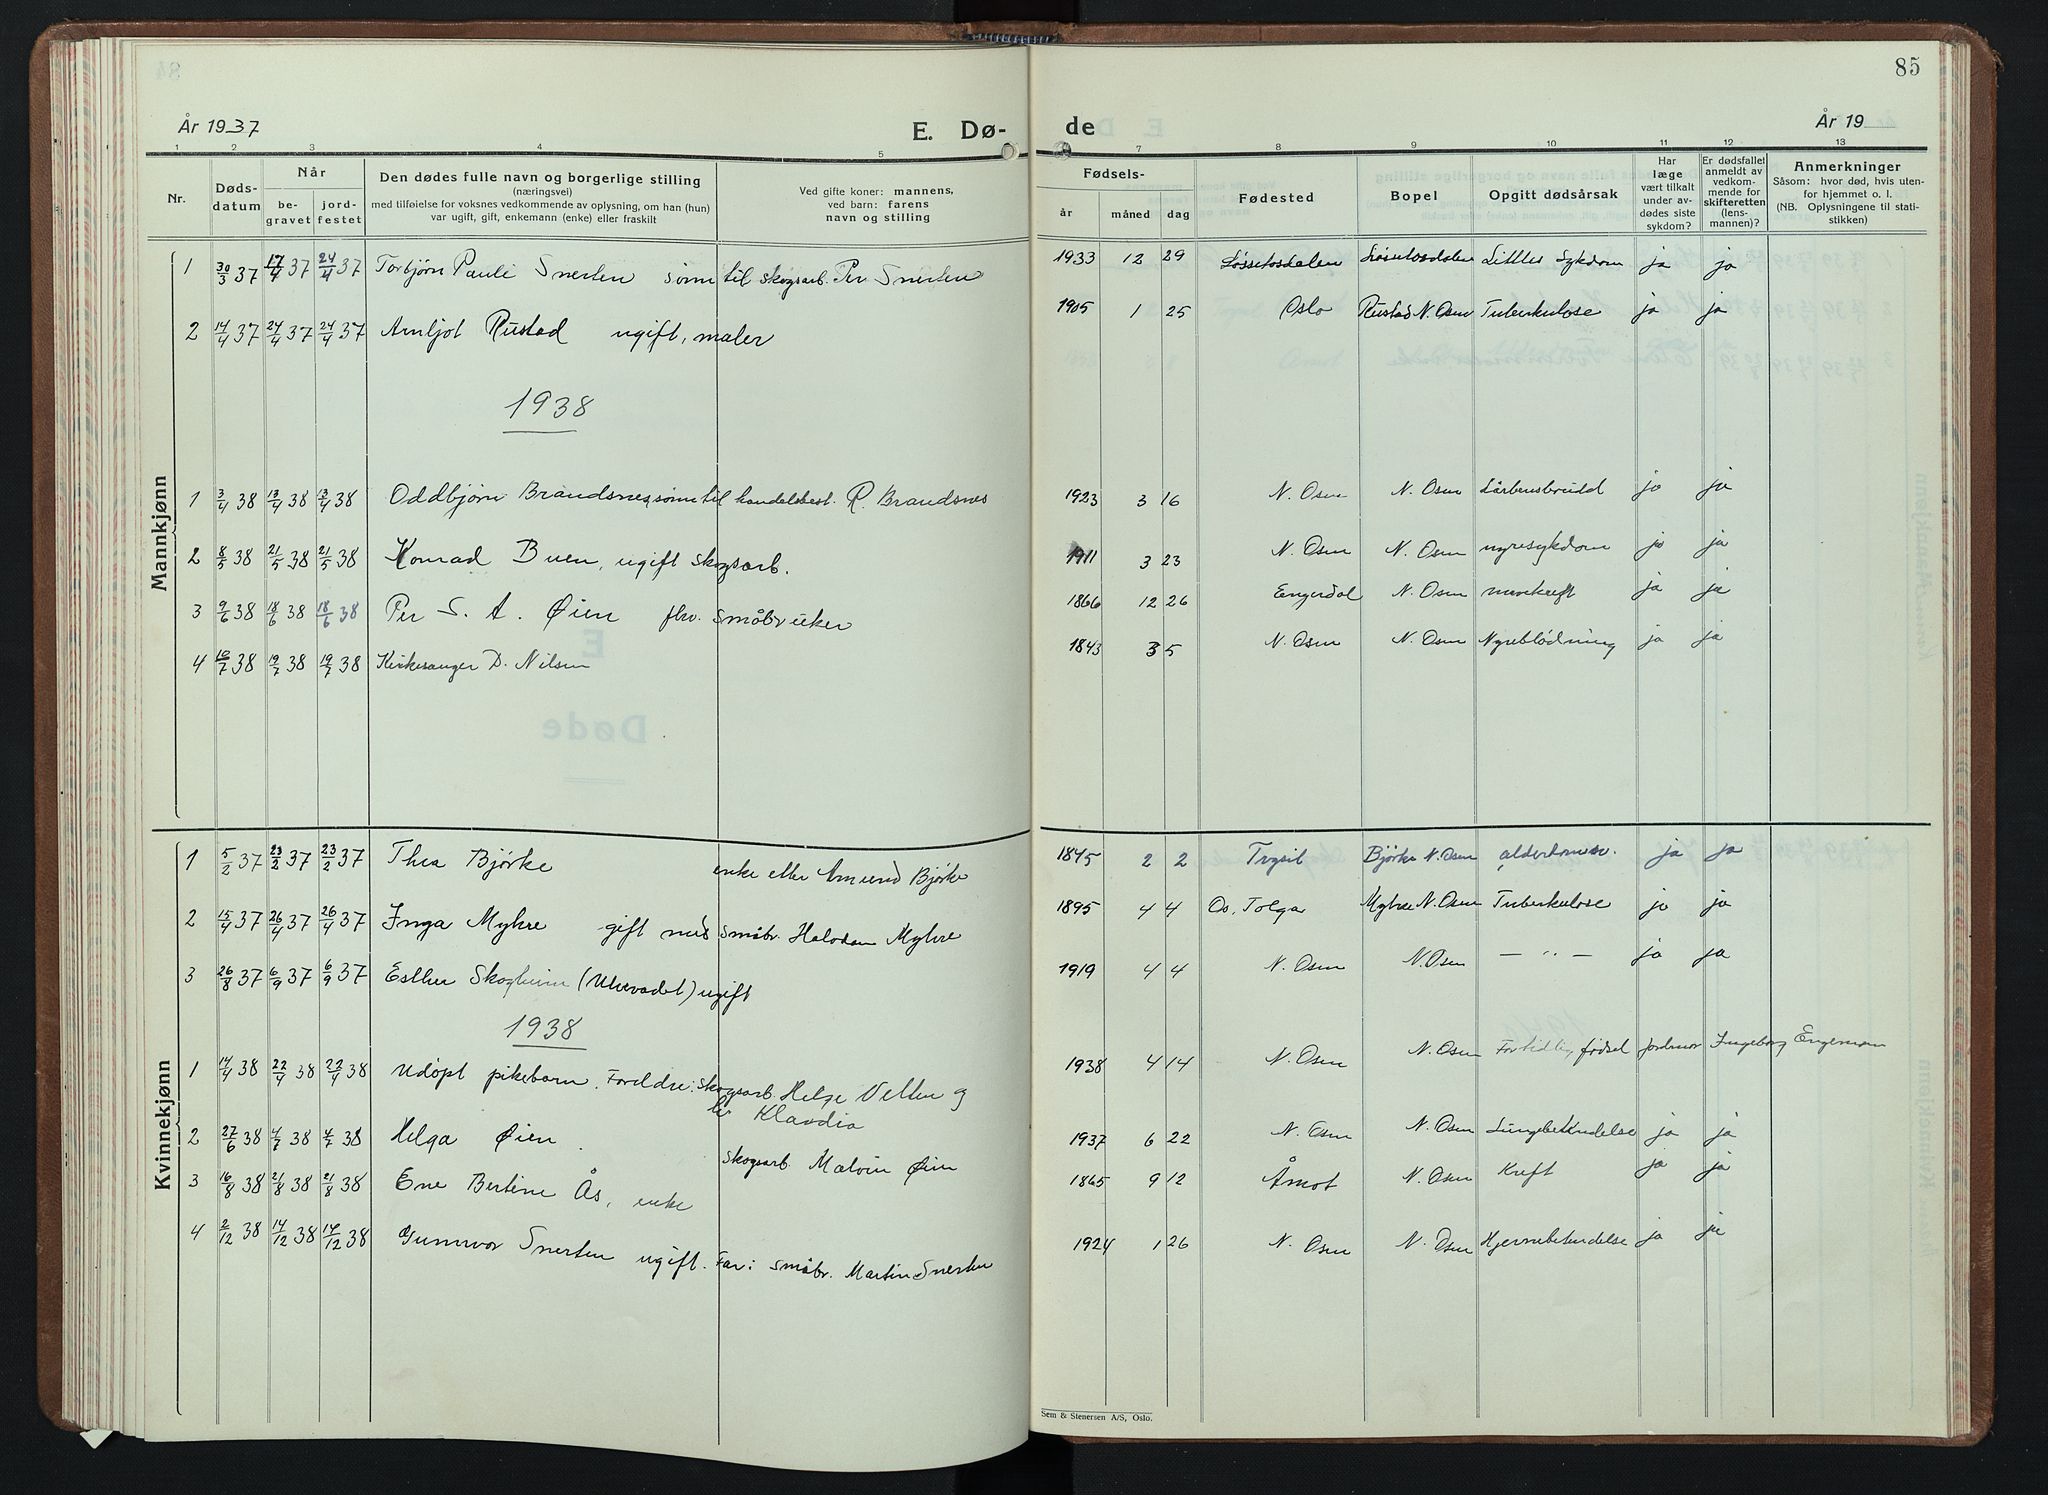 85
År 1937
E. Dø-
de
År 19
1 2 3 4 5
7 8 9 10 11 12 13
Nr.
Døds-
datum
Når
be-
gravet
jord-
festet
Den dødes fulle navn og borgerlige stilling
(næringsvei)
med tilføielse for voksnes vedkommende av oplysning, om han (hun)
var ugift, gift, enkemann (enke) eller fraskilt
Ved gifte koner: mannens,
ved barn: farens
navn og stilling
Fødsels-
år måned dag
Fødested
Bopel
Opgitt dødsårsak
Har
læge
vært tilkalt
under av-
dødes siste
sykdom?
Er dødsfallet
anmeldt av
vedkom-
mende for
skifteretten
(lens-
mannen)?
Anmerkninger
Såsom: hvor død, hvis uten-
for hjemmet o. l.
(NB. Oplysningene til stati-
stikken)
Mannkjønn
1 30/3 37 17/4 37 24/4 37 Torbjørn Pauli Snerten sønn til skogsarb. Per Snerten 1933 12 29 Løssetosdalen Løssetosdalen Littles Sykdom ja ja
2 14/4 37 24/4 37 24/4 37 Arnljot Rustad ugift, maler 1905 1 25 Oslo Rustad N. Osen Tuberkulose ja ja
1938
1 3/4 38 13/4 38 13/4 38 Oddbjørn Brandsnes, sønn til handelsbest. R. Brandsnes 1923 3 16 N. Osen N. Osen ja ja
2 8/5 38 21/5 38 21/5 38 Konrad Buen, ugift skogsarb. 1911 3 23 N. Osen N. Osen nyresykdom ja ja
3 9/6 38 18/6 38 18/6 38 Per S. A. Øien fhv. småbruker 1866 12 26 Engerdal N. Osen mavekreft ja ja
4 10/7 38 19/7 38 19/7 38 Kirkesanger D. Nilsen 1843 3 5 N. Osen N. Osen Nyreblødning ja ja
Kvinnekjønn
1 5/2 37 23/2 37 23/2 37 Thea Bjørke enke etter Amund Bjørke 1845 2 2 Trysil Bjørke N. Osen alderdomssv. ja ja
2 15/4 37 26/4 37 26/4 37 Inga Myhre gift med Småbr. Halvdan Myhre 1895 4 4 Os, Tolga Myhre N. Osen Tuberkulose ja ja
3 26/8 37 6/9 37 6/9 37 Esther Skogheim (Ulvevadet) ugift 1919 4 4 N. Osen N. Osen — " — ja ja
1938
1 14/4 38 22/4 38 22/4 38 Udöpt pikebarn. Foreldre: Skogsarb. Helge Velten og Klaudia 1938 4 14 N. Osen N. Osen For tidlig fødsel Jordmor Ingeborg Engeman
2 27/6 38 4/7 38 4/7 38 Helga Øien. Skogsarb. Malvin Øien 1937 6 22 N. Osen N. Osen Lungebetendelse ja ja
3 16/8 38 21/8 38 21/8 38 Ene Bertine Ås, enke 1865 9 12 Åmot N. Osen Kreft ja ja
4 2/12 38 14/12 38 14/12 38 Gunnvor Snerten ugift. Far: småbr. Martin Snerten 1924 1 26 N. Osen N. Osen Hjernebetendelse ja ja
Sem & Stenersen A/S, Oslo.